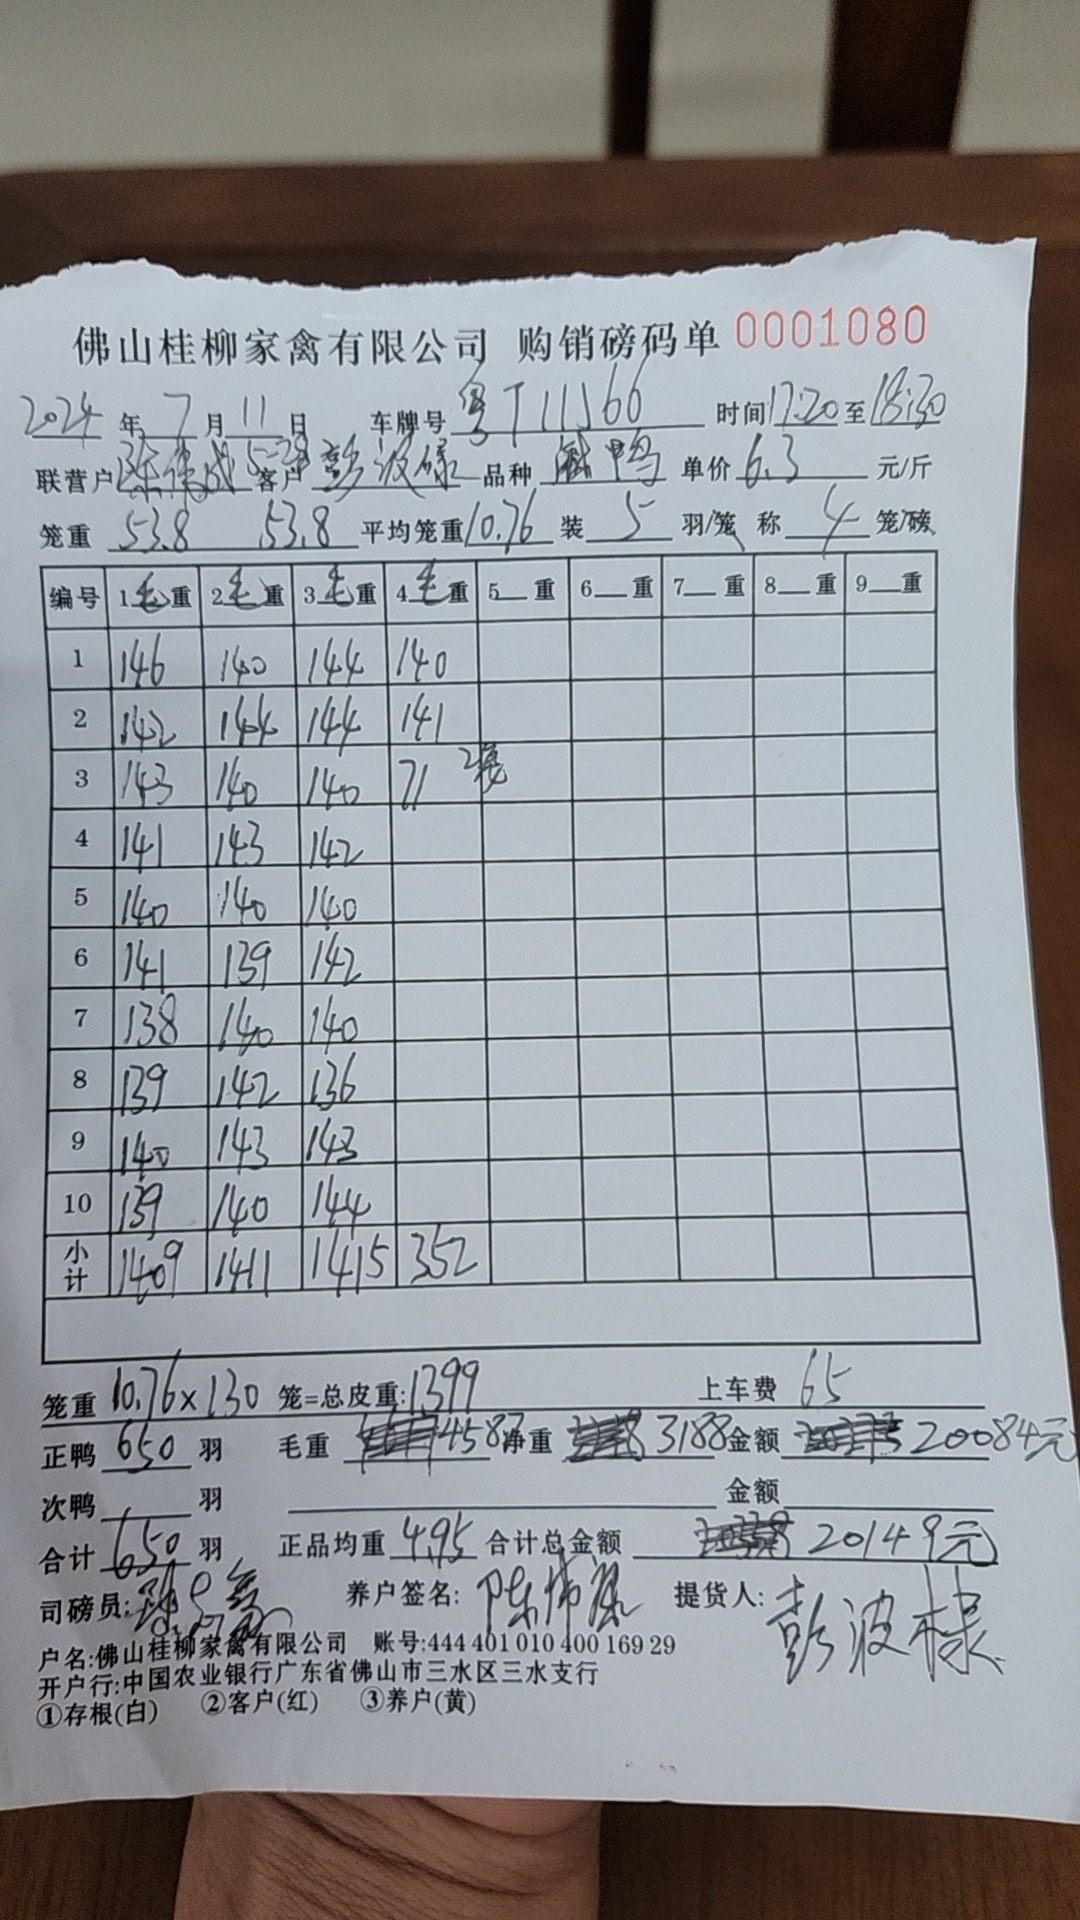 佛山桂柳家禽有限公司 购销磅码单 0001080
2024 年 7 月 11 日 车牌号 粤T11J66 时间 17:20 至 18:30
联营户 客户 彭波禄 品种 鸭 单价 6.3 元/斤
笼重 53.8 53.8 平均笼重 10.76 装 5 羽/笼 称 4 笼/磅
编号 1毛重 2毛重 3毛重 4毛重 5__重 6__重 7__重 8__重 9__重
1 146 140 144 140
2 142 144 144 141
3 143 140 140 71 2笼
4 141 143 142
5 140 140 140
6 141 139 142
7 138 140 140
8 139 142 136
9 140 143 143
10 139 140 144
小计 1409 1411 1415 352
笼重 10.76×130 笼=总皮重:1399 上车费 65
正鸭 650 羽 毛重 4587 净重 3188 金额 20084元
次鸭 羽 金额
合计 650 羽 正品均重 4.95 合计总金额 20149元
司磅员: 养户签名: 陈 提货人: 彭波禄
户名:佛山桂柳家禽有限公司 账号:444 401 010 400 169 29
开户行:中国农业银行广东省佛山市三水区三水支行
①存根(白) ②客户(红) ③养户(黄)